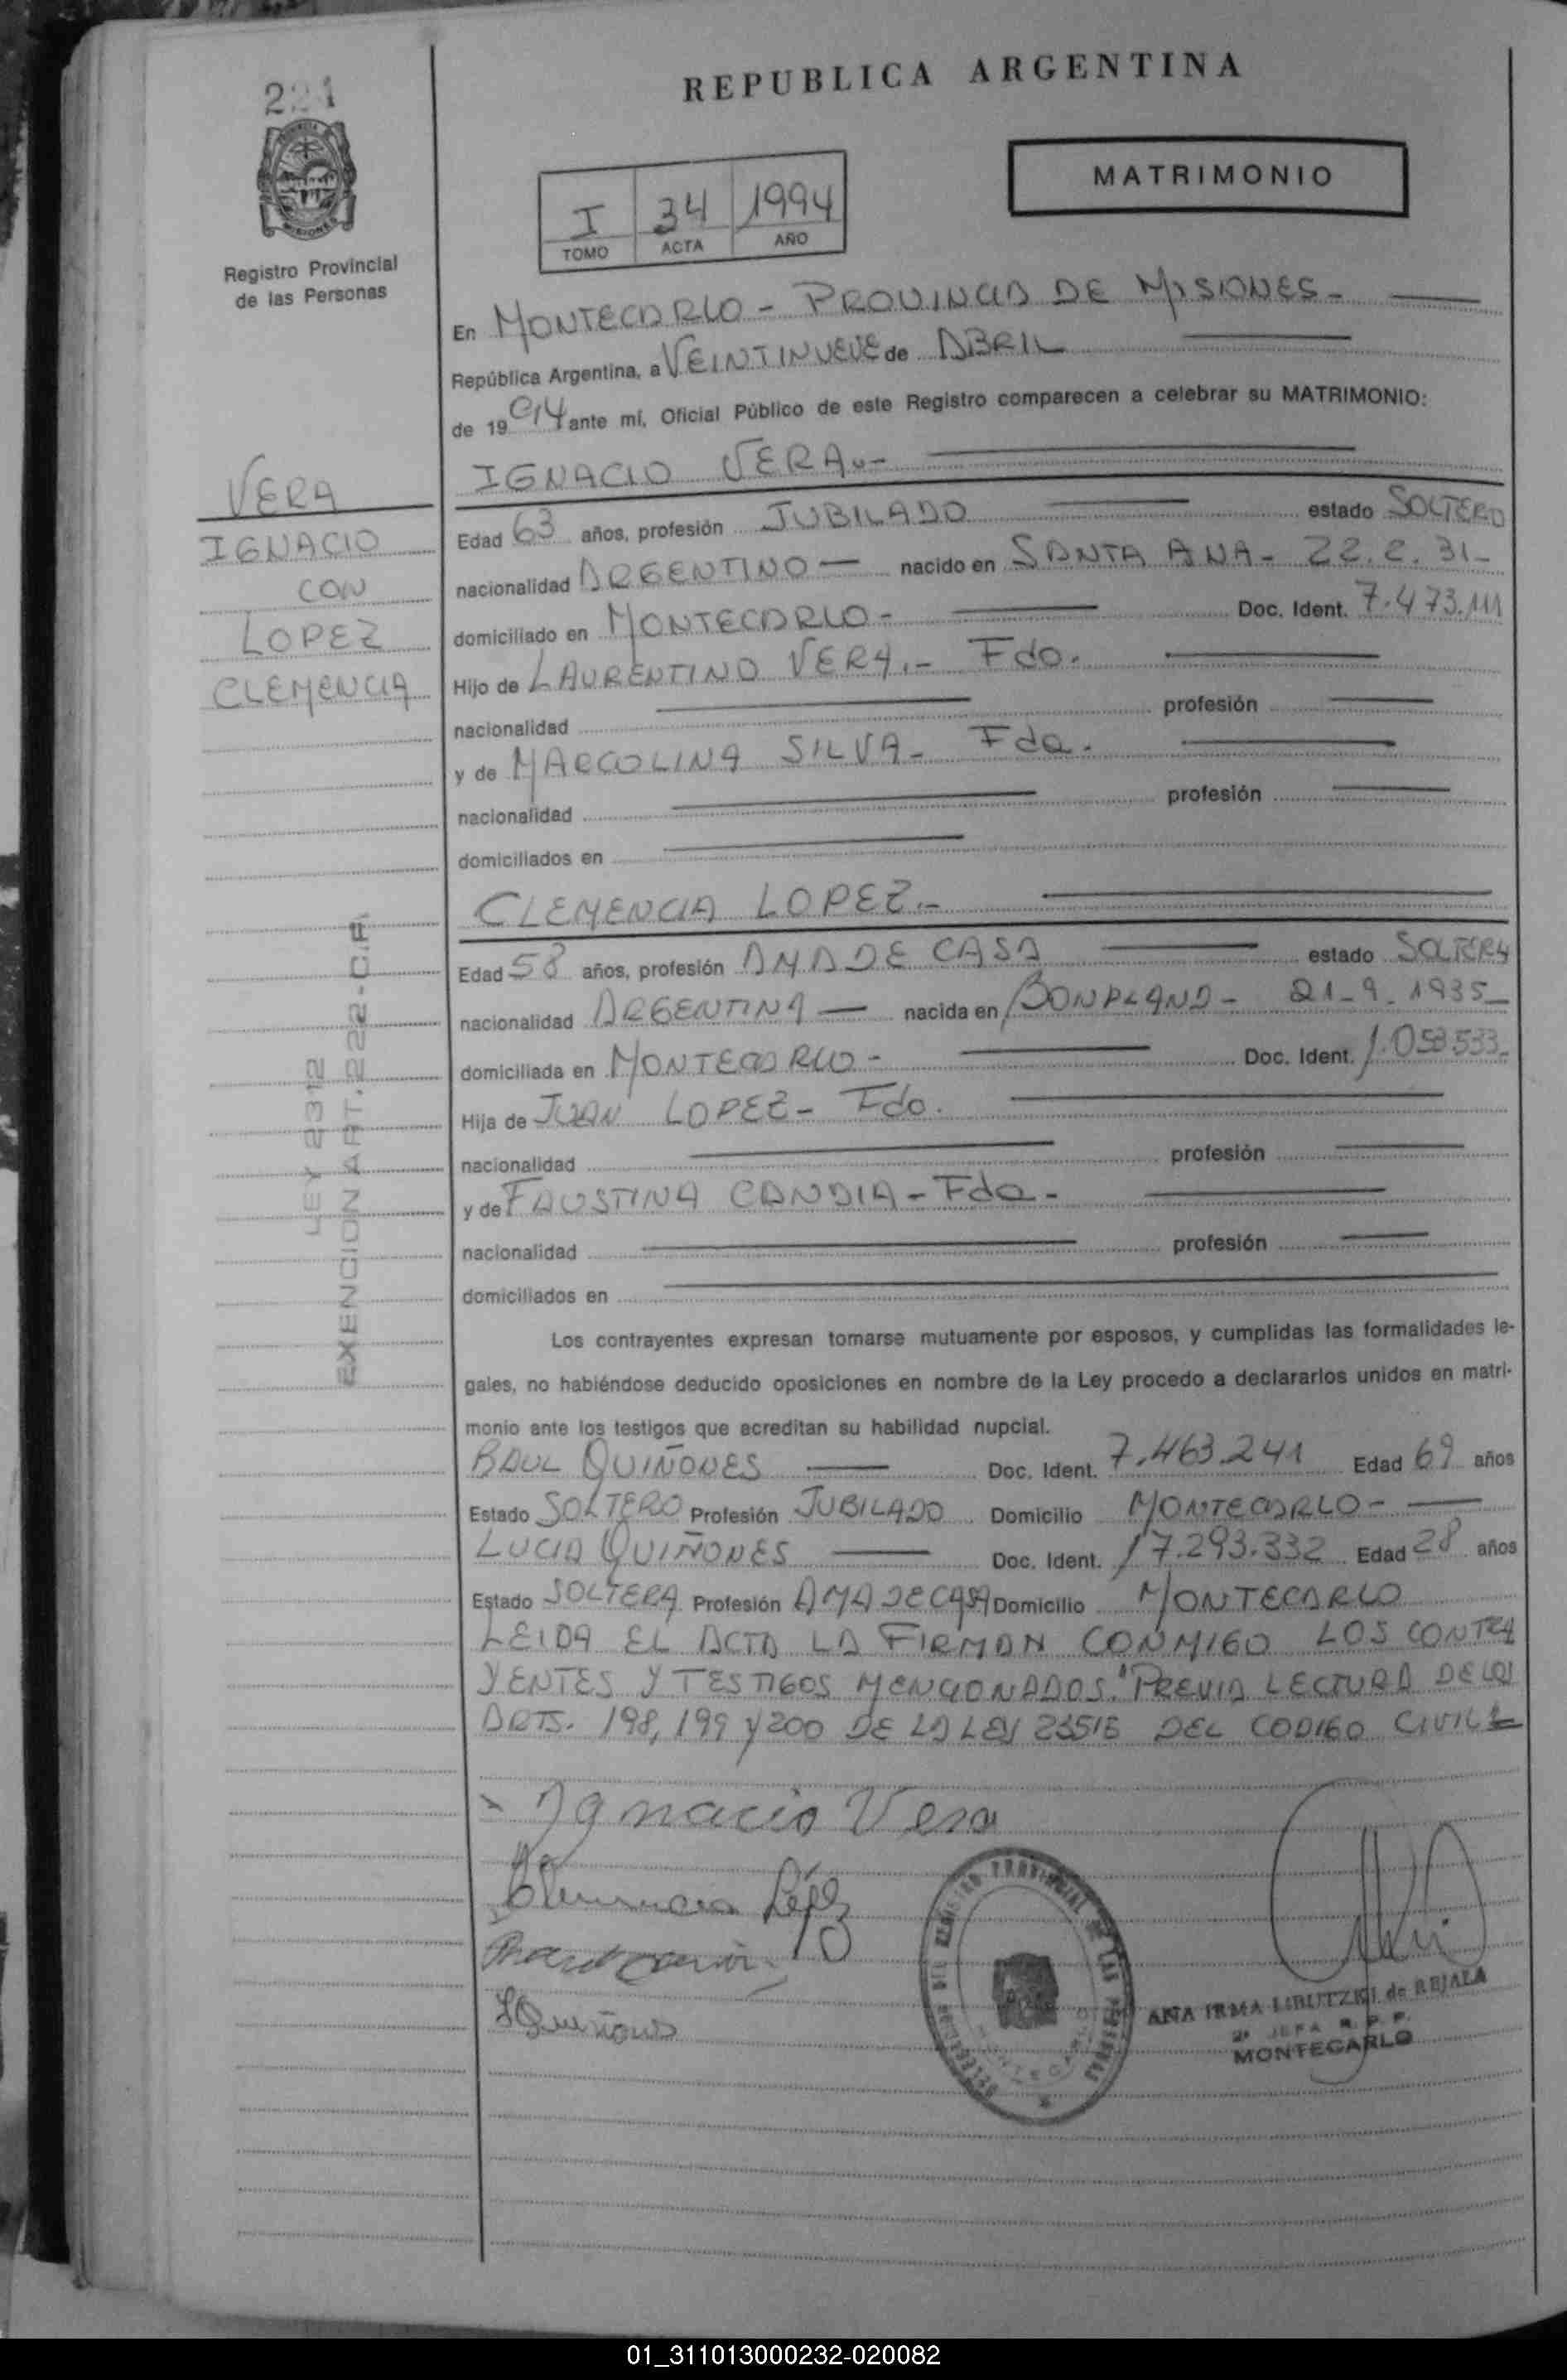 221
REPUBLICA ARGENTINA
MATRIMONIO
I 34 1994
TOMO ACTA AÑO
Registro Provincial
de las Personas
En MONTECARLO - PROVINCIA DE MISIONES -
República Argentina, a VEINTINUEVE de ABRIL
de 1994 ante mí, Oficial Público de este Registro comparecen a celebrar su MATRIMONIO:
IGNACIO VERA.-
VERA
IGNACIO
CON
LOPEZ
CLEMENCIA
Edad 63 años, profesión JUBILADO estado SOLTERO
nacionalidad ARGENTINO — nacido en SANTA ANA - 22.2.31-
domiciliado en MONTECARLO - Doc. Ident. 7.473.111
Hijo de LAURENTINO VERA.- Fdo.
nacionalidad profesión
y de MARCOLINA SILVA - Fda.
nacionalidad profesión
domiciliados en
CLEMENCIA LOPEZ.-
Edad 58 años, profesión AMA DE CASA estado SOLTERA
nacionalidad ARGENTINA — nacida en BONPLAND - 21-9-1935-
domiciliada en MONTECARLO - Doc. Ident. 1.053533-
Hija de JUAN LOPEZ - Fdo.
nacionalidad profesión
y de FAUSTINA CANDIA - Fda -
nacionalidad profesión
domiciliados en
LEY 2312
EXENCION ART. 222 - C.F.
Los contrayentes expresan tomarse mutuamente por esposos, y cumplidas las formalidades le-
gales, no habiéndose deducido oposiciones en nombre de la Ley procedo a declararlos unidos en matri-
monio ante los testigos que acreditan su habilidad nupcial.
RAUL QUIÑONES Doc. Ident. 7.463.241 Edad 69 años
Estado SOLTERO Profesión JUBILADO Domicilio MONTECARLO -
LUCIA QUIÑONES Doc. Ident. 17.293.332 Edad 28 años
Estado SOLTERA Profesión AMA DE CASA Domicilio MONTECARLO
LEIDA EL ACTA LA FIRMAN CONMIGO LOS CONTRA
YENTES Y TESTIGOS MENCIONADOS. "PREVIA LECTURA DE LOS
ARTS. 198, 199 Y 200 DE LA LEY 23515 DEL CODIGO CIVIL
Ignacio Vera
Clemencia López
LQuiñones
REGISTRO PROVINCIAL DE LAS PERSONAS
MONTECARLO
ANA IRMA LIBUTZKI de REJALA
2ª JEFA R. P. P.
MONTECARLO
01_311013000232-020082